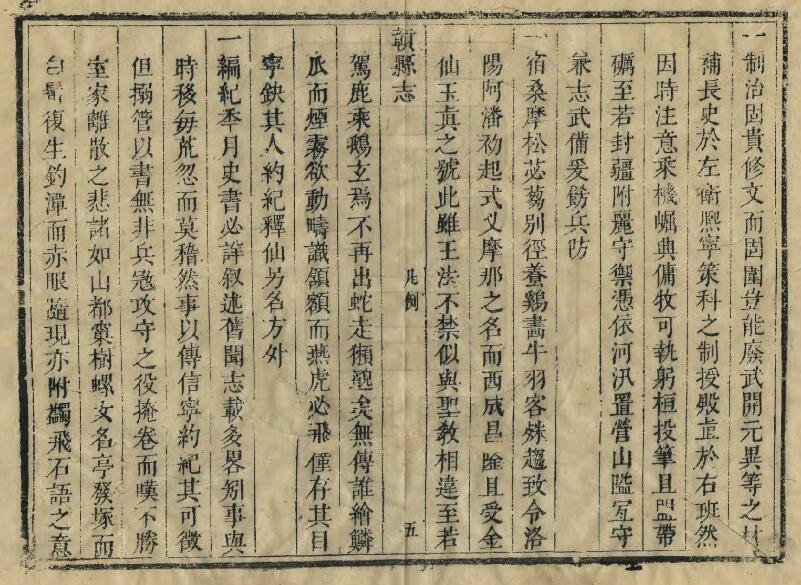 一制治固貴修文而固圉豈能廢武開元異等之材
補長史於左衛熙寧策科之制授殿直於右班然
因時注意乘機崛典傭牧可執躬桓投筆且盟帶
礪至若封疆附麗守禦憑依河汛置營山隘亙守
兼志武備爰飭兵防
一宿桑摩松苾蒭別徑養鷄畵牛羽客殊趨致令洛
陽阿潘初起式义摩那之名而西成昌隆且受金
仙玉真之號此雖王法不禁似與聖教相違至若
贛縣志
凡例
五
駕鹿乘鵝玄焉不再出蛇走獺矣無傳誰繪鱗
爪而煙霧欲動疇識頷額而燕虎必飛僅存其目
寧缺其人約紀釋仙另名方外
一編紀季月史書必詳叙述舊聞志載多畧矧事與
時移每荒忽而莫稽然事以傳信寧約紀其可徵
但搦管以書無非兵寇攻守之役掩卷而嘆不勝
室家離散之悲諸如山都窠樹螺女名亭發塚而
白髯復生釣潭而赤眼隨現亦附蠲飛石語之意